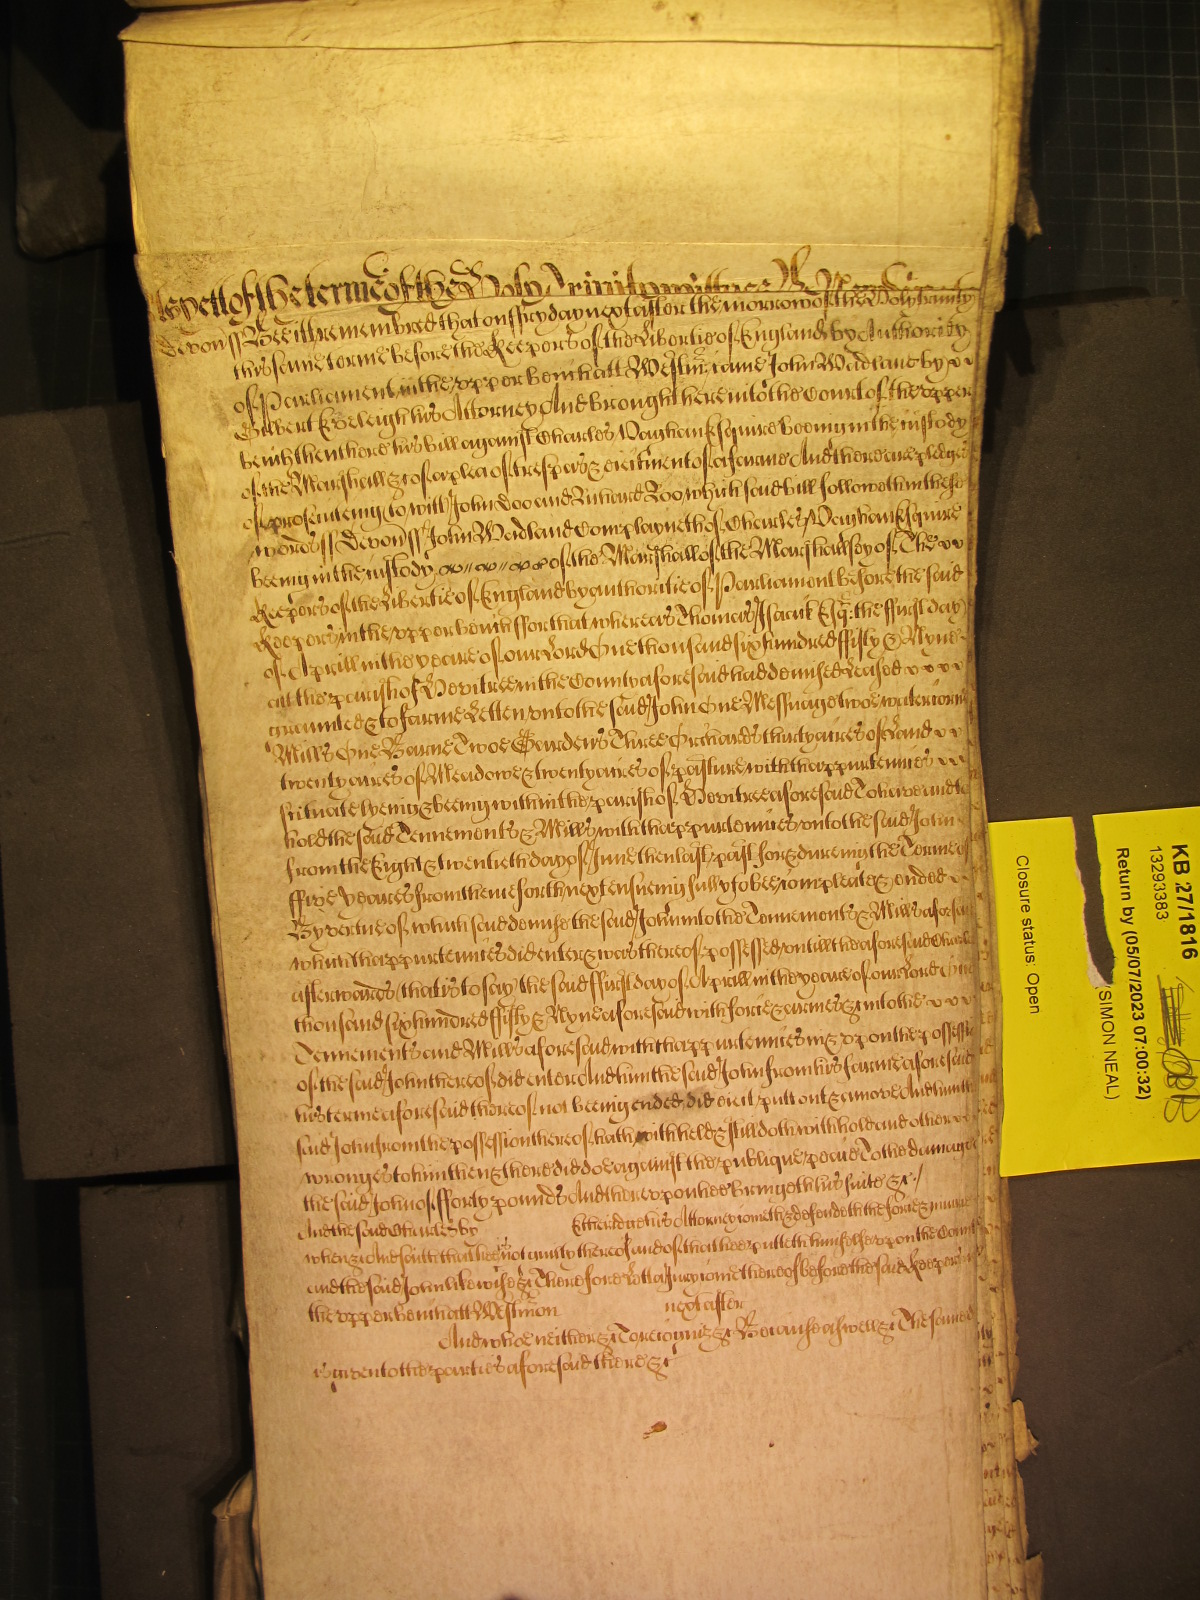 As yett of the terme of the Holy Trinity
Devon ss Bee it remembred that on ffryday next after the morrow of the Holy Trinity
this same terme before the Keepers of the Libertie of England by Authority
of Parliament in the upper bench att Westmr came John Wadland by
Gilbert Eveleigh his Attorney And brought here into the Court of the upper
bench then there his bill against Charles Vaghan Esquire beeing in the custody
of the Marshall &c of a plea of trespas & eiectment of a farme And there are pledges
of prosecuteing (to witt) John Doo and Richard Roo which said bill followeth in these
words ss Devon ss John Wadland Complayneth of Charles Vaghan Esquire
beeing in the custody of the Marshall of the Marshallsey of The
Keepers of the Libertie of England by authoritie of Parliament before the said
Keepers in the upper bench ffor that whereas Thomas Isacck Esqr: the ffirst day
of Aprill in the yeare of our Lord One thousand six hundred ffifty & Nyne
att the parish of Hevitree in the County aforesaid had demised Leased
graunted & to farme Letten unto the said John One Messuage twoe water corne
Mills One Barne Twoe Gardens Three Orchards thirty acres of Land
twenty acres of Meadowe & twenty acres of pasture with thappurtennces
scituate lyeing & beeing within the parish of Hevitree aforesaid To have and to
hold the said Tennements & Mills with thappurtennces unto the said John
from the Eight & twentieth day of June then last past for & dureing the Terme of
ffive yeares from thence forth next ensueing fully to bee compleate & ended
By vertue of which said demise the said John into the Tennements & Mills aforesaid
with thappurtennces did enter & was thereof possessed untill the aforesaid Charles
afterwards (that is to say) the said ffirst day of Aprill in the yeare of our Lord One
thousand six hundred ffifty & Nyne aforesaid with force & armes &c into the
Tennements and Mills aforesaid with thappurtennces in & upon the possession
of the said John thereof did enter And him the said John from his farme aforesaid
his terme aforesaid thereof not beeing ended did eiect putt out & amove And him the
said John from the possession thereof hath withheld & still doth withhold and other
wronges to him then & there did doe against the publique peace To the damage
the said John of fforty pounds And thereupon hee bringeth his suite &c./
And the said Charles by Etheridge his Attorney cometh & defendeth the force & iniurie
when &c And saith that hee is not guilty thereof and of that hee putteth himselfe upon the Countrey
and the said John likewise &c Therefore Lett a Jury come thereof before the said Keepers
the upper bench att Westmon next after
And whoe neither &c To recognize &c Because aswell &c The same
is given to the parties aforesaid there &c
KB 27/1816
13293383
Return by (05/07/2023 07:00:32)
(SIMON NEAL)
Closure status: Open